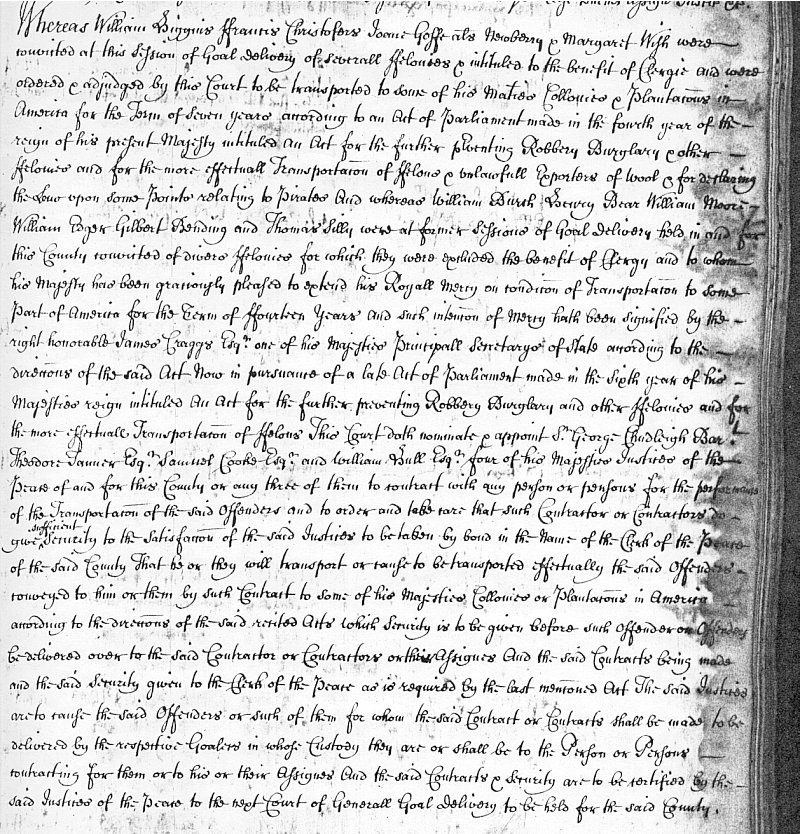 Whereas William Higgins ffrancis Christofers Joane Goffe als Newberry & Margaret Wish were
convicted at this Session of Goal delivery of severall ffelonies & intituled to the benefit of Clergie and were
ordered & adjudged by this Court to be transported to some of his Maties Collonies & Plantacons in
America for the Term of seven years according to an Act of Parliament made in the fourth year of the
reign of his present Majesty intituled An Act for the further pventing Robbery Burglary & other
ffelonies and for the more effectuall Transportacon of ffelons & unlawfull Exporters of wool & for declaring
the Law upon some Points relating to Pirates And whereas William Burch Dewry Bear William Moore
William Edger Gilbert Bending and Thomas Silly were at former Sessions of Goal delivery held in and for
this County convicted of divers ffelonies for which they were excluded the benefit of Clergy and to whom
his Majesty has been graciously pleased to extend his Royall Mercy on condicon of Transportacon to some
Part of America for the Term of ffourteen Years And such intencon of Mercy hath been signified by the
right honorable James Craggs Esqr. one of his Majesties Principall Secretarys of State according to the
direccons of the said Act Now in pursuance of a late Act of Parliament made in the sixth year of his
Majesties reign intituled An Act for the further preventing Robbery Burglary and other ffelonies and for
the more effectuall Transportacon of ffelons This Court doth nominate & appoint Sr. George Chudleigh Bart.
Theodore Tanner Esqr. Samuel Cooke Esqr. and William Bull Esqr. four of his Majesties Justices of the
Peace of and for this County or any three of them to contract with any person or persons for the performance
of the Transportacon of the said Offenders and to order and take care that such Contractor or Contractors do
give sufficient Security to the Satisfaccon of the said Justices to be taken by bond in the Name of the Clerk of the Peace
of the said County That he or they will transport or cause to be transported effectually the said Offenders
conveyed to him or them by such Contract to some of his Majesties Collonies or Plantacons in America
according to the direccons of the said recited Acts Which Security is to be given before such Offender or Offenders
be delivered over to the said Contractor or Contractors or their Assignes And the said Contracts being made
and the said Security given to the Clerk of the Peace as is required by the last mencioned Act The said Justices
are to cause the said Offenders or such of them for whom the said Contract or Contracts shall be made to be
delivered by the respective Goalers in whose Custody they are or shall be to the Person or Persons
contracting for them or to his or their Assignes And the said Contracts & Security are to be certified by the
said Justices of the Peace to the next Court of Generall Goal delivery to be held for the said County.